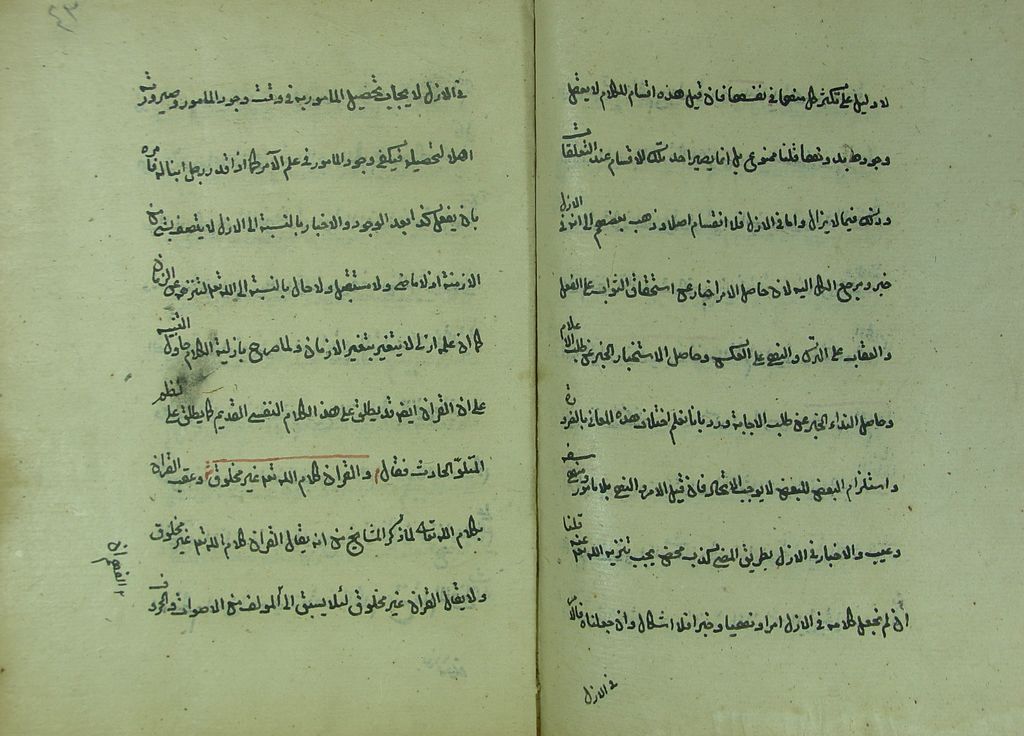 لا دليل على تكثر كل منها في نفسها فان قيل هذه اقسام للكلام لا يعقل
وجوده بدونها قلنا ممنوع بل انما يصير احد تلك الاقسام عند التعلقات
وذلك فيما لا يزال واما في الازل فلا انقسام اصلا وذهب بعضهم الى انه في الازل
خبر ومرجع الكل اليه لان حاصل الامر اخبار عن استحقاق الثواب على الفعل
والعقاب على الترك والنهي على العكس وحاصل الاستخبار الخبر عن طلب الاعلام
وحاصل النداء الخبر عن طلب الاجابة ورد بانا نعلم اختلاف هذه المعاني بالضرورة
واستلزام البعض للبعض لا يوجب الاتحاد فان قيل الامر والنهي بلا مامور ومنهي سفه
وعبث والاخبار في الازل بطريق المضي كذب محض يجب تنزيه الله تعالى عنه قلنا
ان لم نجعل كلامه في الازل امرا ونهيا وخبرا فلا اشكال وان جعلناه فالامر
في الازل
٤٣
في الازل لايجاب تحصيل المامور به في وقت وجود المامور وصيرورته
اهلا لتحصيله فيكفي وجود المامور في علم الآمر كما اذا قدر رجل ابنا له فامره
بان يفعل كذا بعد الوجود والاخبار بالنسبة الى الازل لا يتصف بشئ من
الازمنة اذ لا ماضي ولا مستقبل ولا حال بالنسبة الى الله تعالى لتنزهه عن الزمان
كما ان علمه ازلي لا يتغير بتغير الازمان ولما صرح بازلية الكلام حاول التنبيه
على ان القران ايضا قد يطلق على هذا الكلام النفسي القديم كما يطلق على النظم
المتلو الحادث فقال والقران كلام الله تعالى غير مخلوق وعقب القران
بكلام الله تعالى لما ذكر المشايخ من انه يقال القران كلام الله تعالى غير مخلوق
ولا يقال القران غير مخلوق لئلا يسبق الى الفهم ان المؤلف من الاصوات والحروف